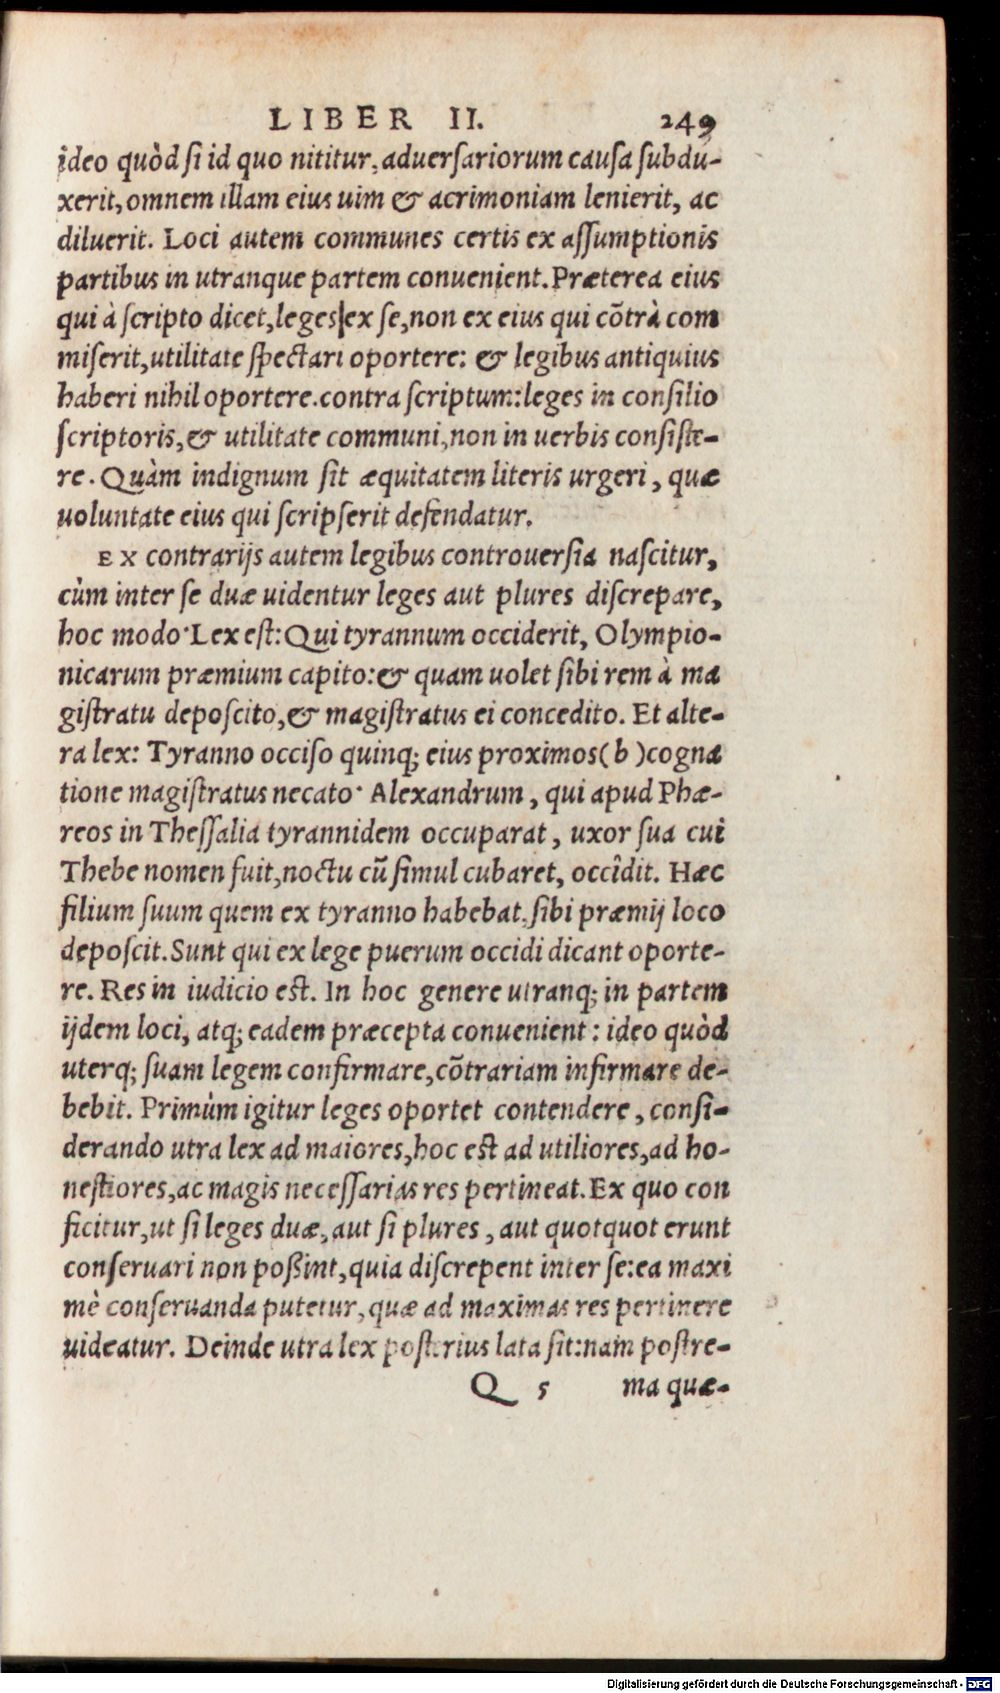 LIBER II. 249
ideo quòd si id quo nititur, aduersariorum causa subdu-
xerit, omnem illam eius uim & acrimoniam lenierit, ac
diluerit. Loci autem communes certis ex assumptionis
partibus in utranque partem conuenient. Præterea eius
qui à scripto dicet, leges ex se, non ex eius qui cõtrà com
miserit, utilitate spectari oportere: & legibus antiquius
haberi nihil oportere. contra scriptum: leges in consilio
scriptoris, & utilitate communi, non in uerbis consiste-
re. Quàm indignum sit æquitatem literis urgeri, quæ
uoluntate eius qui scripserit defendatur.
EX contrarijs autem legibus controuersia nascitur,
cùm inter se duæ uidentur leges aut plures discrepare,
hoc modo. Lex est: Qui tyrannum occiderit, Olympio-
nicarum præmium capito: & quam uolet sibi rem à ma
gistratu deposcito, & magistratus ei concedito. Et alte-
ra lex: Tyranno occiso quinq; eius proximos (b) cogna
tione magistratus necato. Alexandrum, qui apud Phæ-
reos in Thessalia tyrannidem occuparat, uxor sua cui
Thebe nomen fuit, noctu cũ simul cubaret, occîdit. Hæc
filium suum quem ex tyranno habebat, sibi præmij loco
deposcit. Sunt qui ex lege puerum occidi dicant oporte-
re. Res in iudicio est. In hoc genere utranq; in partem
ijdem loci, atq; eadem præcepta conuenient: ideo quòd
uterq; suam legem confirmare, cõtrariam infirmare de-
bebit. Primùm igitur leges oportet contendere, consi-
derando utra lex ad maiores, hoc est ad utiliores, ad ho-
nestiores, ac magis necessarias res pertineat. Ex quo con
ficitur, ut si leges duæ, aut si plures, aut quotquot erunt
conseruari non poßint, quia discrepent inter se: ea maxi
mè conseruanda putetur, quæ ad maximas res pertinere
uideatur. Deinde utra lex posterius lata sit: nam postre-
Q 5 ma quæ-
Digitalisierung gefördert durch die Deutsche Forschungsgemeinschaft - DFG